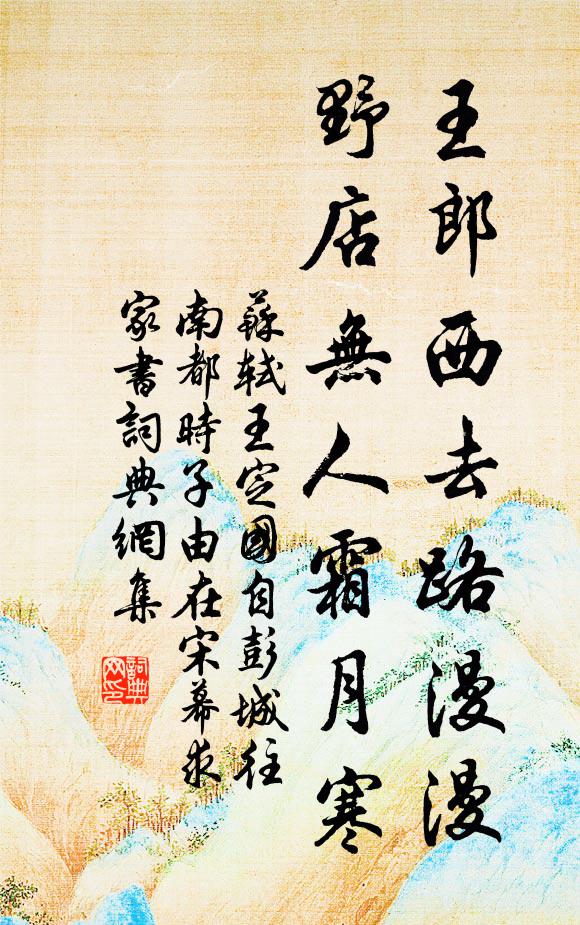 王郎西去路漫漫
野店無人霜月寒
蘇軾王定國自彭城往
南都時子由在宋幕求
家書詞典網集
詞典
网印